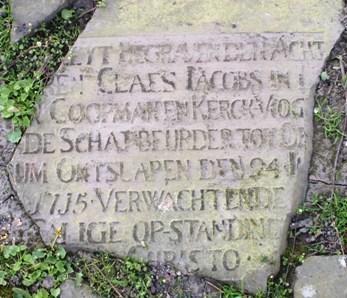 LEYT BEGRAVEN DEN ACHT
CLAES IACOBS IN
COOPMAN EN KERCKVOG
DE SCHATBEURDER TOT
UM ONTSLAPEN DEN 24
1715 · VERWACHTENDE
LIGE OP-STANDING
CHRISTO